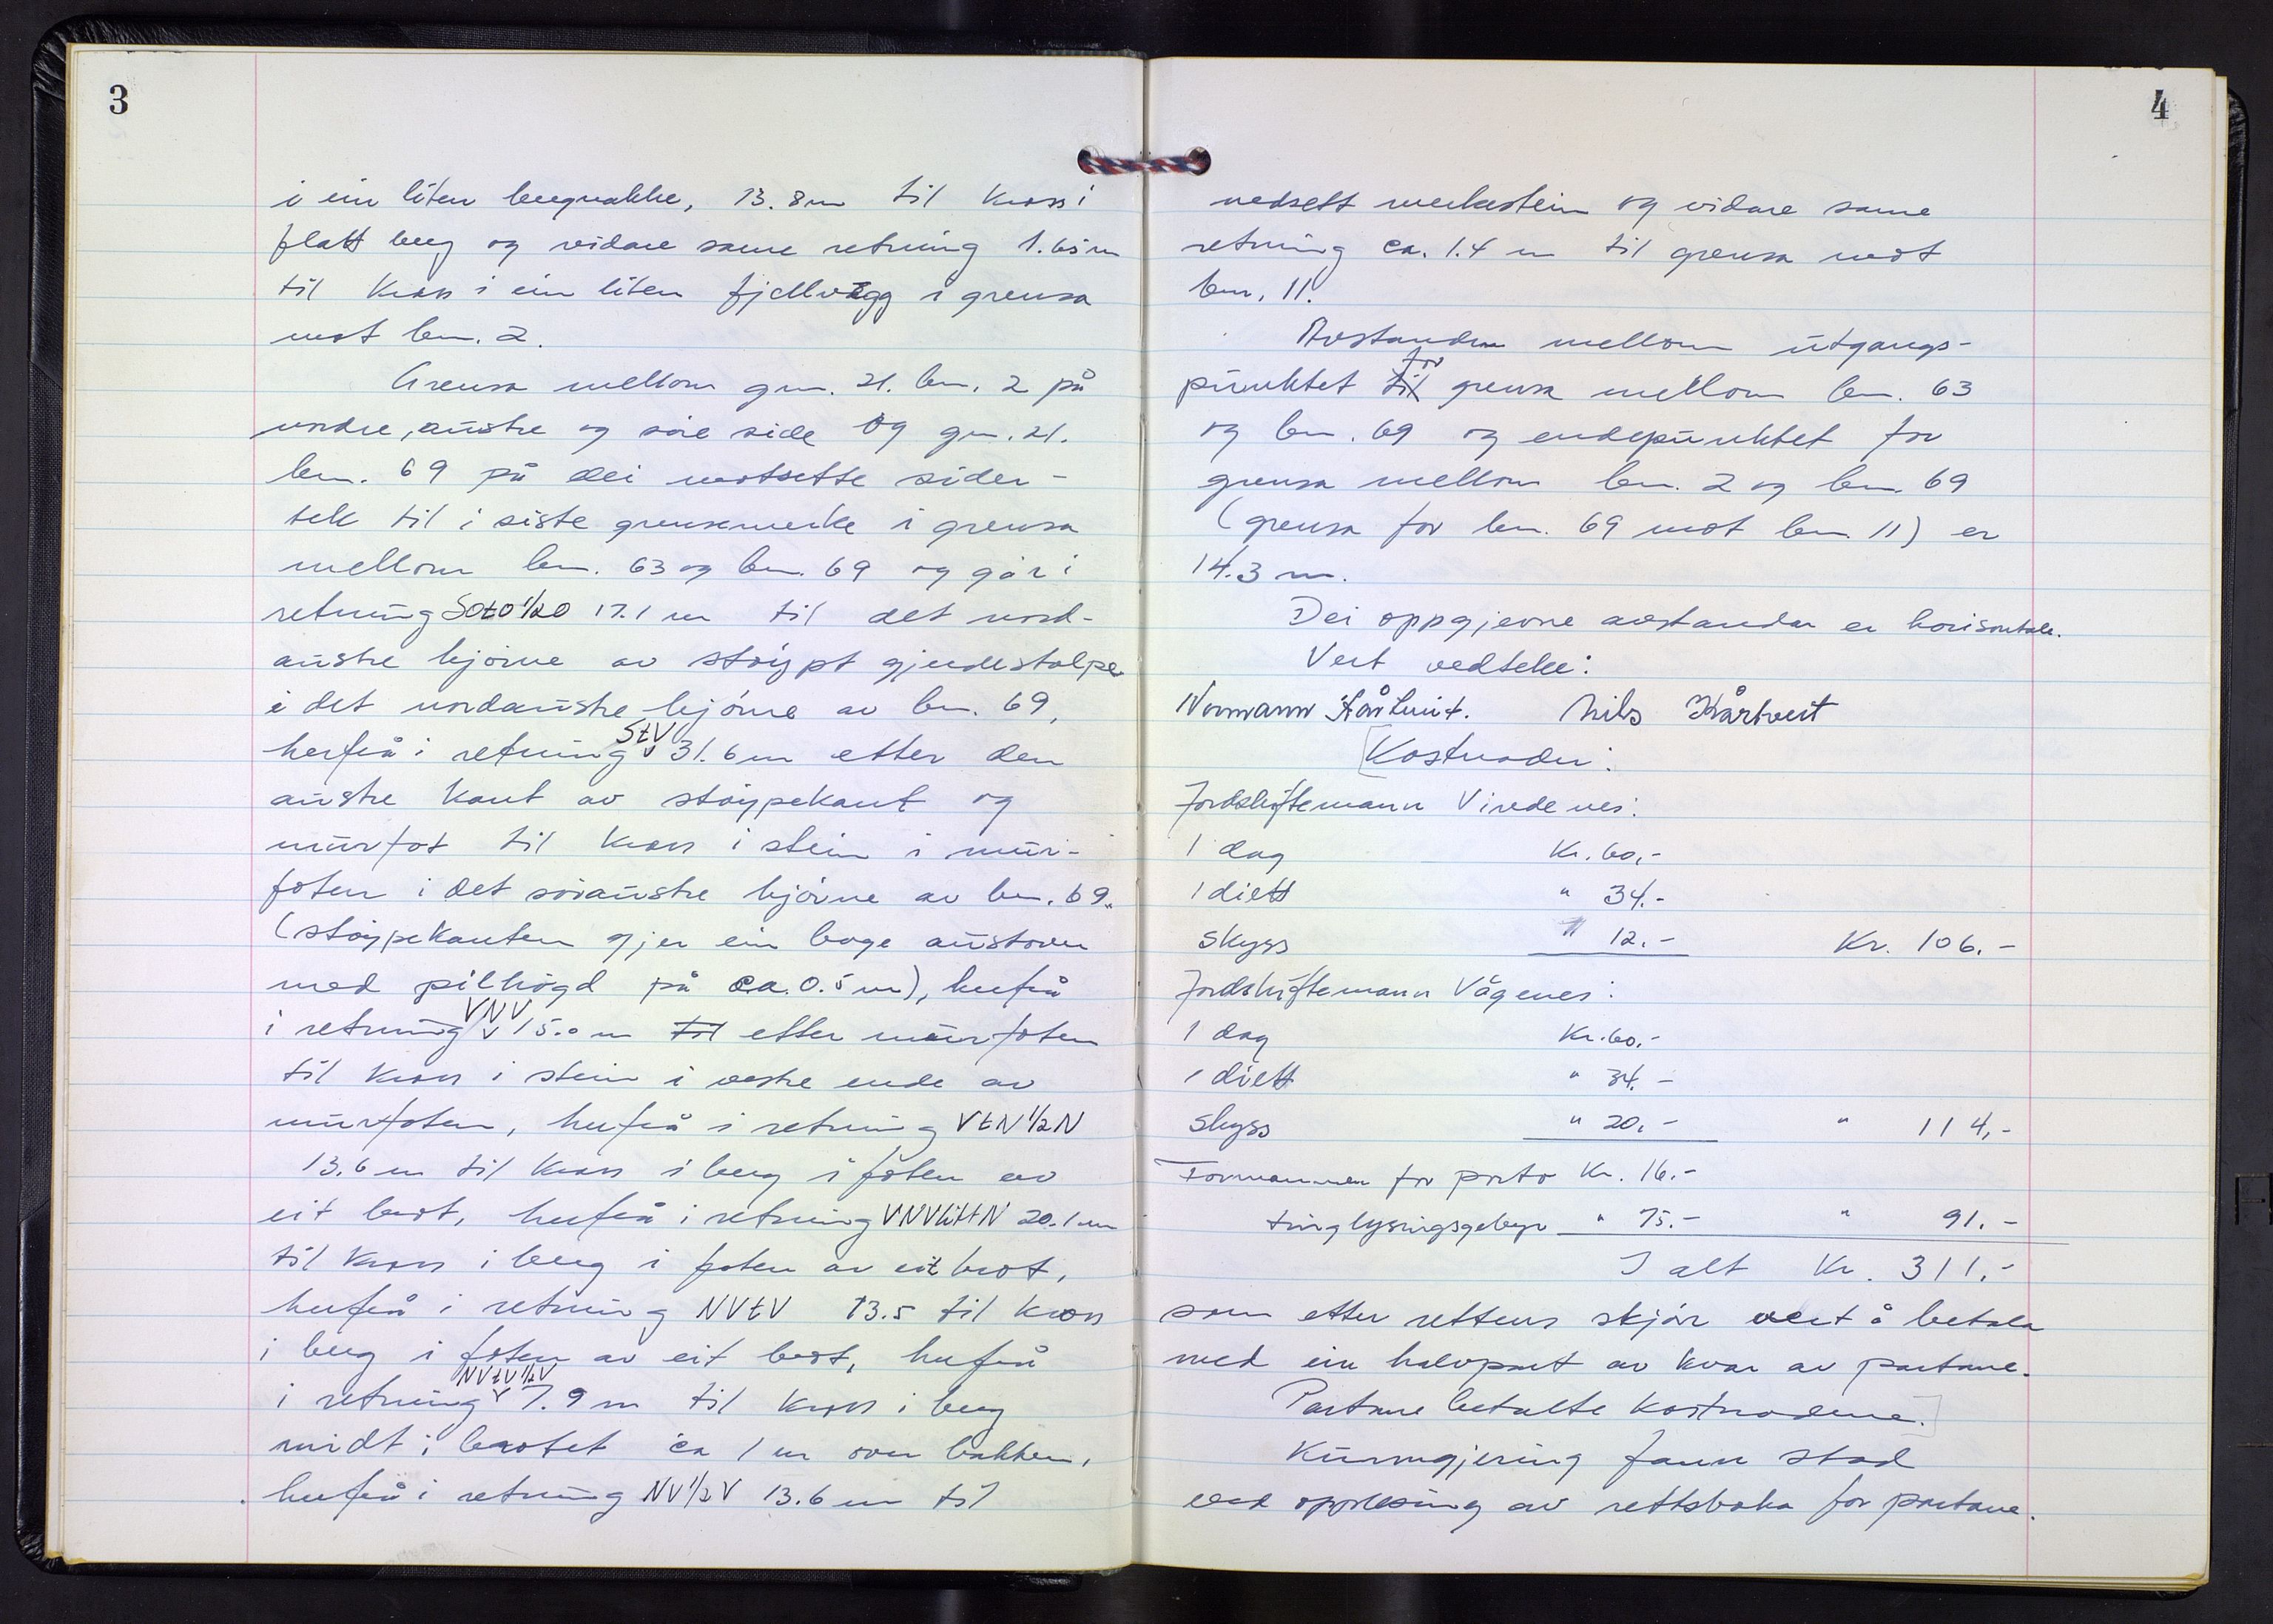 3
i ein liten bergnakke, 13.8m til kross i
flatt berg og vidare same retning 1.65m
til kross i ein liten fjellvegg i grensa
mot bnr. 2.
Grensa mellom gnr. 21. bnr. 2 på
nordre, austre og søre side og gnr. 21.
bnr. 69 på dei motsette sider -
tek til i siste grensemerke i grensa
mellom bnr. 63 og bnr. 69 og går i
retning SOtO 1/2 O 17.1 m til det nord-
austre hjørne av støypt gjerdestolpe
i det nordaustre hjørne av bnr. 69,
herfrå i retning StV 31.6 m etter den
austre kant av støypekant og
murfot til kross i stein i mur-
foten i det søraustre hjørne av bnr. 69.
(støypekanten gjer ein boge austover
med pilhøgd på ca. 0.5 m), herfrå
i retning VNV 15.0 m til etter murfoten
til kross i stein i vestre ende av
murfoten, herfrå i retning VtN 1/2 N
13.6 m til kross i berg i foten av
eit brot, herfrå i retning VNVlittN 20.1 m
til kross i berg i foten av eit brot,
herfrå i retning NVtV 13.5 til kross
i berg i foten av eit brot, herfrå
i retning NVtV 1/2 V 7.9 m til kross i berg
midt i brotet ca 1 m over bakken,
herfrå i retning NV 1/2 V 13.6 m til
4
nedsett merkestein og vidare same
retning ca. 1.4 m til grensa mot
bnr. 11.
Avstanden mellom utgangs-
punktet til for grensa mellom bnr. 63
og bnr. 69 og endepunktet for
grensa mellom bnr. 2 og bnr. 69
(grensa for bnr. 69 mot bnr. 11) er
14.3 m.
Dei oppgjevne avstandar er horisontale.
Vert vedteke:
Normann Kårtveit. Nils Kårtveit
[Kostnader:
Jordskiftemann Vindenes:
1 dag Kr. 60,-
1 diett " 34.-
Skyss " 12.- Kr. 106.-
Jordskiftemann Vågenes:
1 dag Kr. 60.-
1 diett " 34.-
Skyss " 20.- " 114,-
Formannen for porto Kr. 16.-
tinglysingsgebyr " 75.- " 91.-
I alt Kr. 311.-
som etter rettens skjør vert å betala
med ein halvpart av kvar av partane.
Partane betalte kostnadene.]
Kunngjering fann stad
ved opplesing av rettsboka for partane.